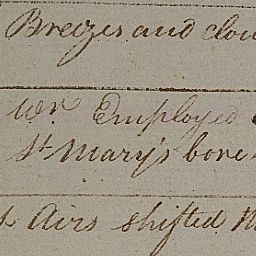 Breezes and clou
wr. Employed
St. Mary's bore
Airs shifted